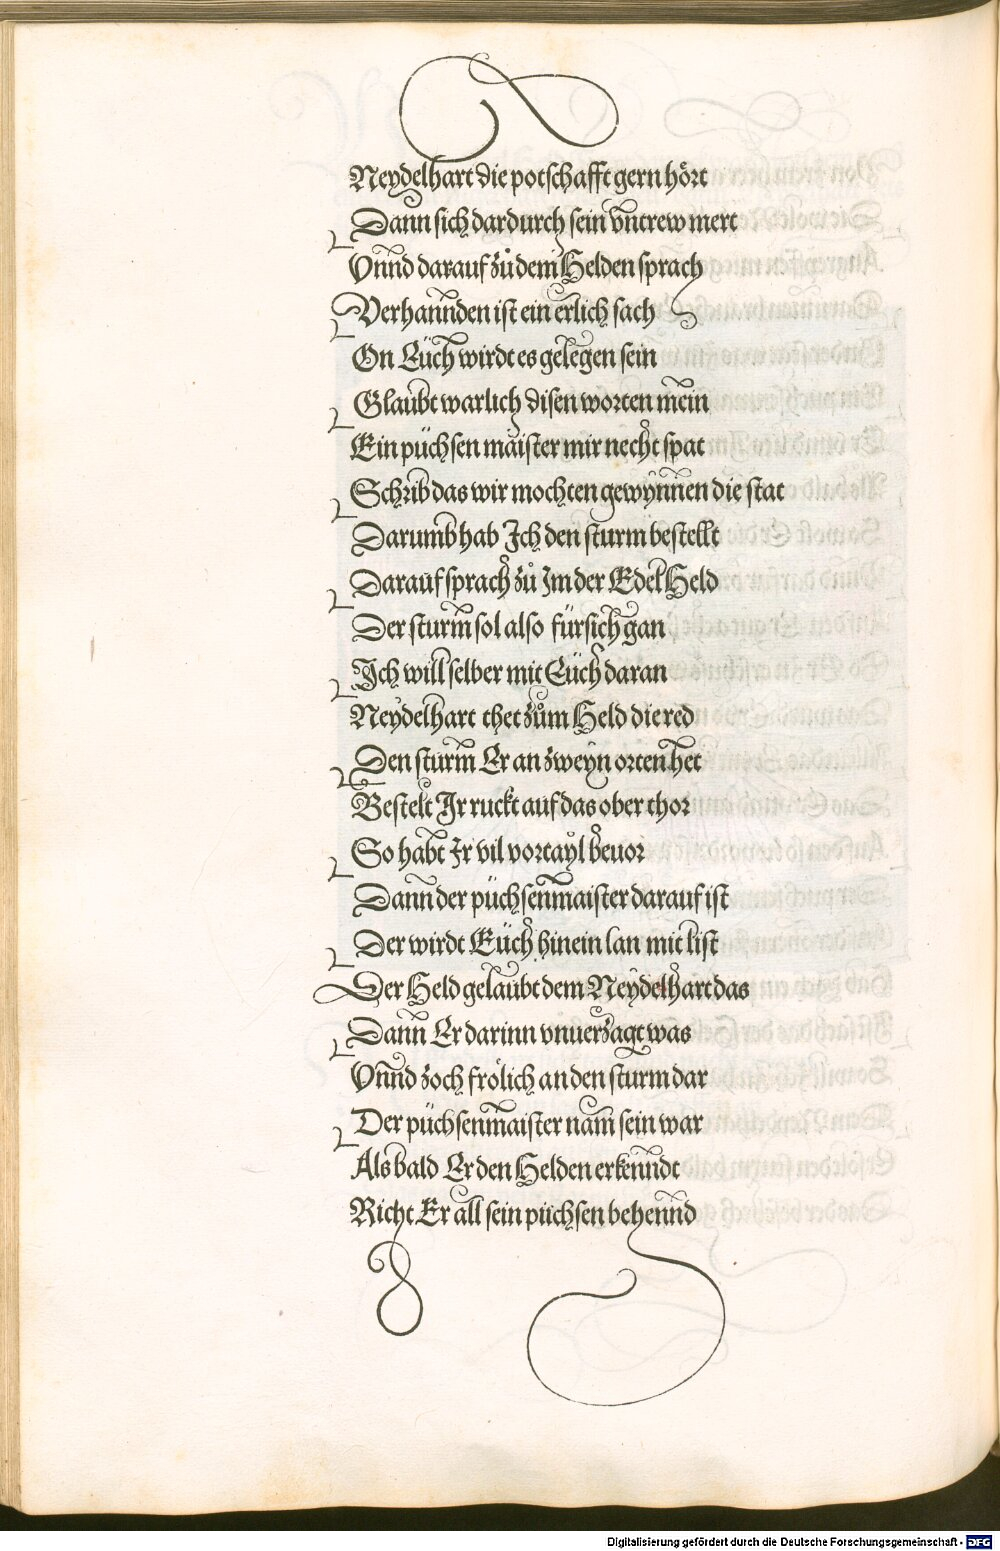 Neydelhart die potschafft gern hört
Dann sich dardurch sein vntrew mert
Vnnd darauf zů dem Helden sprach
Verhannden ist ein erlich sach
On Eüch wirdt es gelegen sein
Glaubt warlich disen worten mein
Ein püchsen maister mir necht spat
Schrib das wir mochten gewynnen die stat
Darumb hab Ich den sturm bestellt
Darauf sprach zů Im der Edel Held
Der sturm sol also fürsich gan
Ich will selber mit Eüch daran
Neydelhart thet zům Held die red
Den sturm Er an zweyn orten het
Bestelt Ir ruckt auf das ober thor
So habt Ir vil vortayl beuor
Dann der püchsenmaister darauf ist
Der wirdt Eüch hinein lan mit list
Der Held gelaubt dem Neydelhart das
Dann Er darinn vnuerzagt was
Vnnd zoch frölich an den sturm dar
Der püchsenmaister nam sein war
Als bald Er den Helden erkenndt
Richt Er all sein püchsen behennd
Digitalisierung gefördert durch die Deutsche Forschungsgemeinschaft - DFG